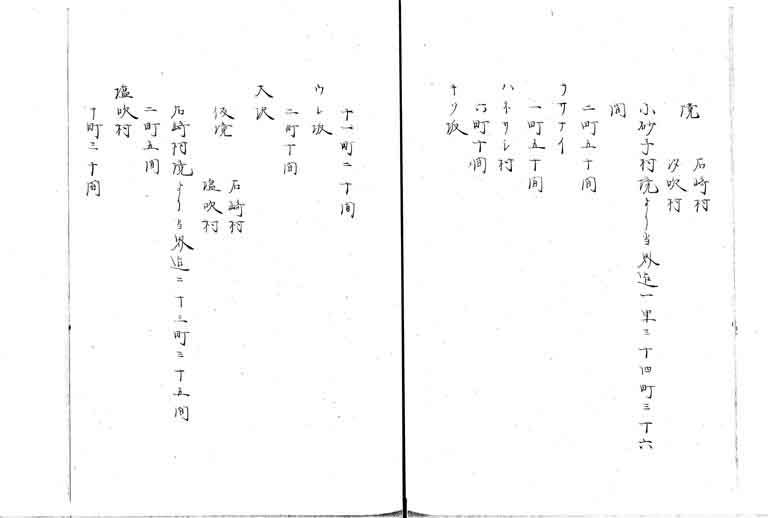 境 石崎村
汐吹村
小砂子村境より当界迄一里三十四町三十六
間
二町五十間
ヲサナイ
一町五十間
ハネサシ村
六町十間
キツ坂
十一町二十間
ウし坂
二町十間
大沢
仮境 石崎村
塩吹村
石崎村境より当界迄二十三町三十五間
二町五間
塩吹村
十町三十間